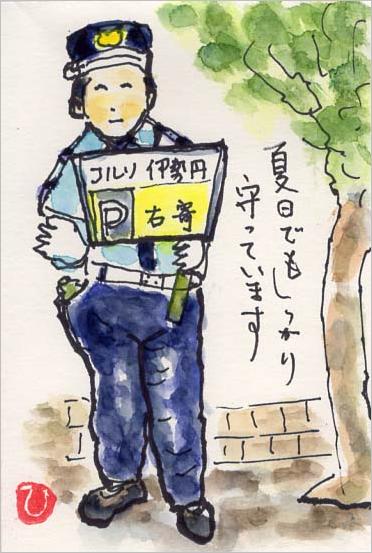 コルソ 伊勢丹
P 右寄
夏日でもしっかり
守っています
ひ